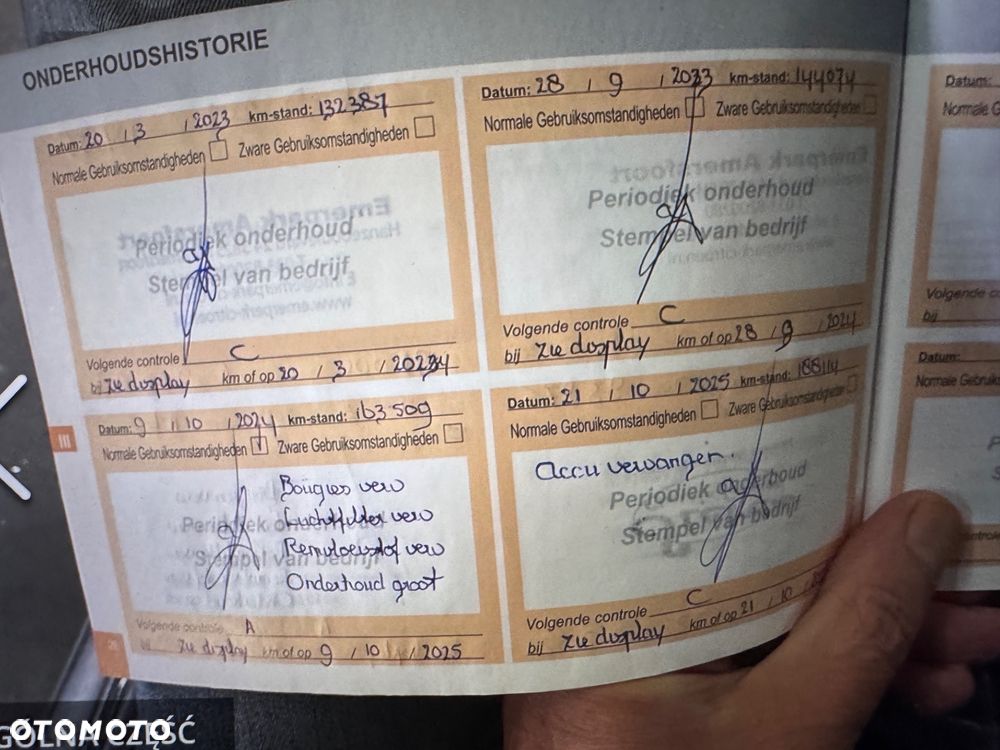 ONDERHOUDSHISTORIE
Datum: 20 / 3 / 2023 km-stand: 132387
Normale Gebruiksomstandigheden Zware Gebruiksomstandigheden
Periodiek onderhoud
Stempel van bedrijf
Volgende controle C
bij zie display km of op 20 / 3 /
Datum: 28 / 9 / 2023 km-stand: 144074
Normale Gebruiksomstandigheden Zware Gebruiksomstandigheden
Periodiek onderhoud
Stempel van bedrijf
Volgende controle C
bij zie display km of op 28 / 9 / 2024
Datum: 9 / 10 / 2024 km-stand: 163509
Normale Gebruiksomstandigheden Zware Gebruiksomstandigheden
Bougies verv
Luchtfilter verv
Remvloeistof verv
Onderhoud groot
Periodiek onderhoud
Stempel van bedrijf
Volgende controle A
zie display km of op 9 / 10 / 2025
Datum: 21 / 10 / 2025 km-stand: 188114
Normale Gebruiksomstandigheden Zware Gebruiksomstandigheden
Accu vervangen.
Periodiek onderhoud
Stempel van bedrijf
Volgende controle C
bij zie display km of op 21 / 10 /
Datum:
Normale
Volgende c
bij
Datum:
Normale Gebruik
III
OTOMOTO
GÓLNA CZĘŚĆ